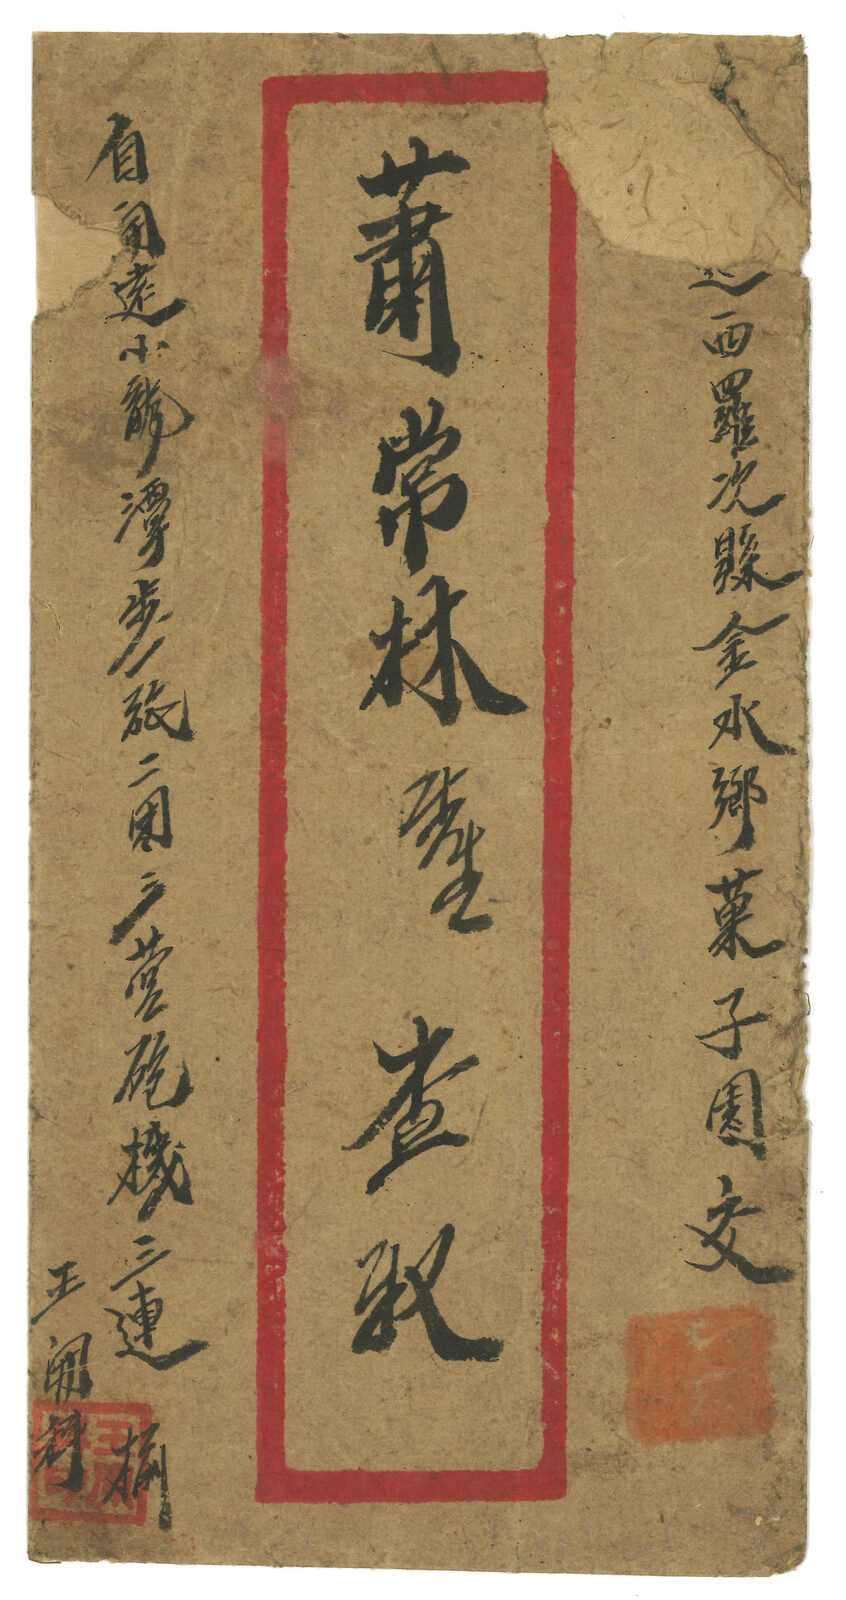 西羅次縣金水鄉菓子園交
蕭常林先生 查收
自開遠小龍潭步一旅二團三營砲機三連
王開科